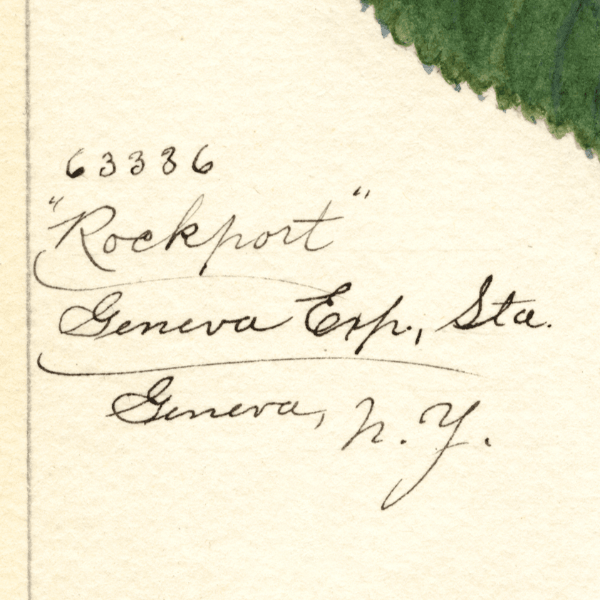 63336
"Rockport"
Geneva Exp., Sta.
Geneva, N.Y.